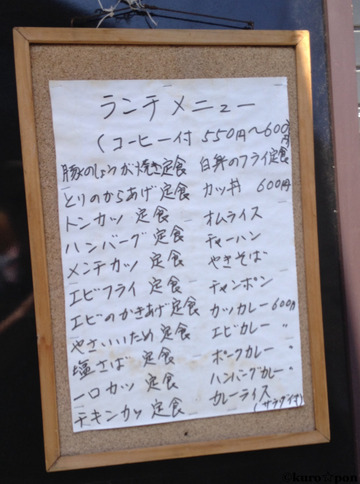 ランチメニュー
(コーヒー付 550円〜600円
豚のしょうが焼き定食 白身のフライ定食
とりのからあげ定食 カツ丼 600円
トンカツ 定食 オムライス
ハンバーグ 定食 チャーハン
メンチカツ 定食 やきそば
エビフライ 定食 チャンポン
エビのかきあげ定食 カツカレー 600円
やさいいため 定食 エビカレー 〃
塩さば 定食 ポークカレー 〃
一口カツ 定食 ハンバーグカレー 〃
チキンカツ 定食 カレーライス
(サラダ付)
©kuro☆pon